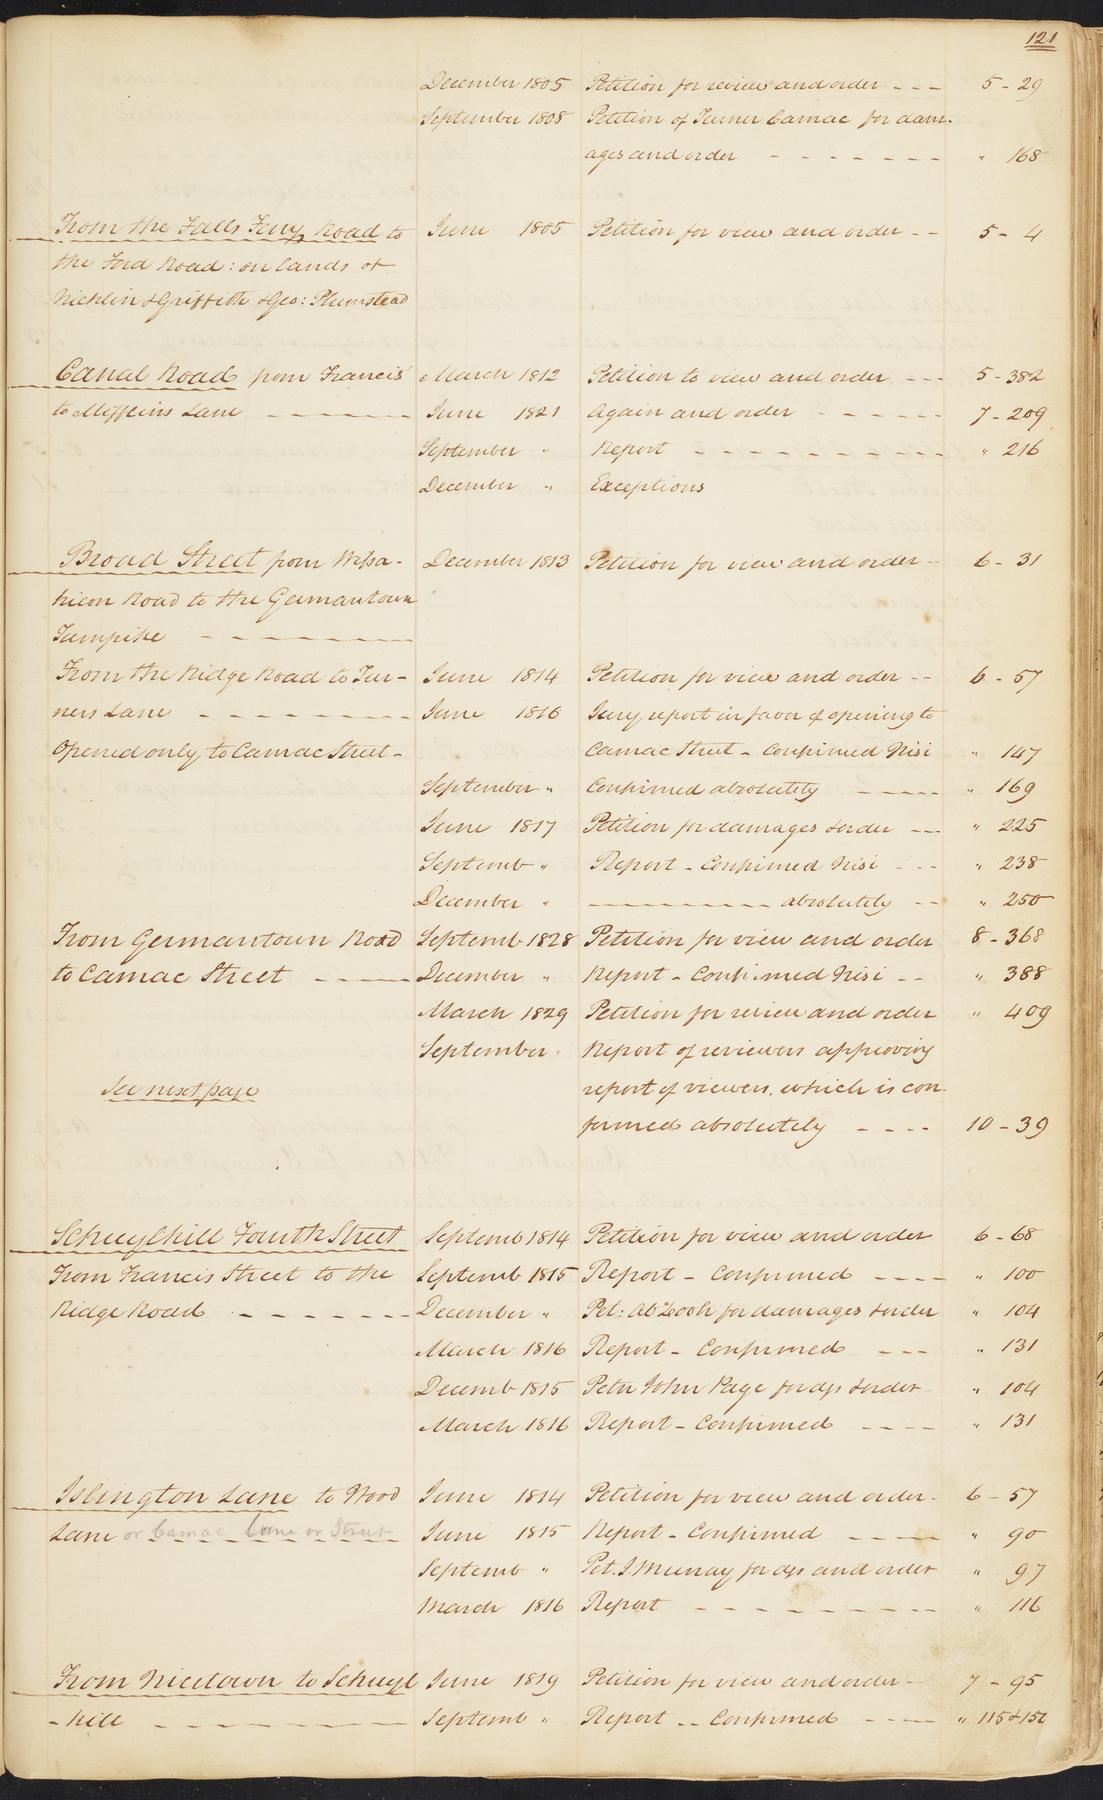 121
December 1805 Petition for review and order --- 5 - 29
September 1808 Petition of Turner Camac for dam-
ages and order ------- " 168
From the Falls Ferry Road to June 1805 Petition for view and order -- 5 - 4
the Ford Road: on lands of
Nicklin & Griffith & Geo: Plumstead
Canal Road from Francis' March 1812 Petition to view and order --- 5 - 382
to Mifflins Lane ------- June 1821 Again and order ------ 7 - 209
September " Report ---------- " 216
December " Exceptions
Broad Street from Wissa- December 1813 Petition for view and order -- 6 - 31
hicon Road to the Germantown
Turnpike --------
From the Ridge Road to Tur- June 1814 Petition for view and order -- 6 - 57
ners Lane -------- June 1816 Jury report in favor of opening to
Opened only to Camac Street - Camac Street - Confirmed Nisi " 147
September " Confirmed absolutely ----- " 169
June 1817 Petition for damages & order --- " 225
Septemb " Report - Confirmed Nisi --- " 238
December " --------- absolutely -- " 250
From Germantown Road Septemb 1828 Petition for view and order 8 - 368
to Camac Street ----- December " Report - Confirmed Nisi -- " 388
March 1829 Petition for review and order " 409
September " Report of reviewers approving
See next page report of viewers, which is con-
firmed absolutely ---- 10 - 39
Schuylkill Fourth Street Septemb 1814 Petition for view and order 6 - 68
From Francis Street to the Septemb 1815 Report - Confirmed ---- " 100
Ridge Road ------- December " Pet: for damages & order " 104
March 1816 Report - Confirmed --- " 131
Decemb 1815 Petn John Page for dgs & order " 104
March 1816 Report - Confirmed ---- " 131
Islington Lane to Wood June 1814 Petition for view and order - 6 - 57
Lane or Camac Lane or Street June 1815 Report - Confirmed ----- " 90
Septemb " Pet. J. Murray for dgs and order " 97
March 1816 Report --------- " 116
From Nicetown to Schuyl June 1819 Petition for view and order -- 7 - 95
- kill --------- Septemb " Report -- Confirmed ---- " 115 & 150